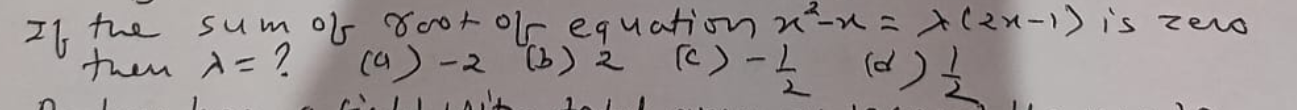 If the sum of root of equation x²-x = λ(2x-1) is zero
then λ = ? (a) -2 (b) 2 (c) -1/2 (d) 1/2